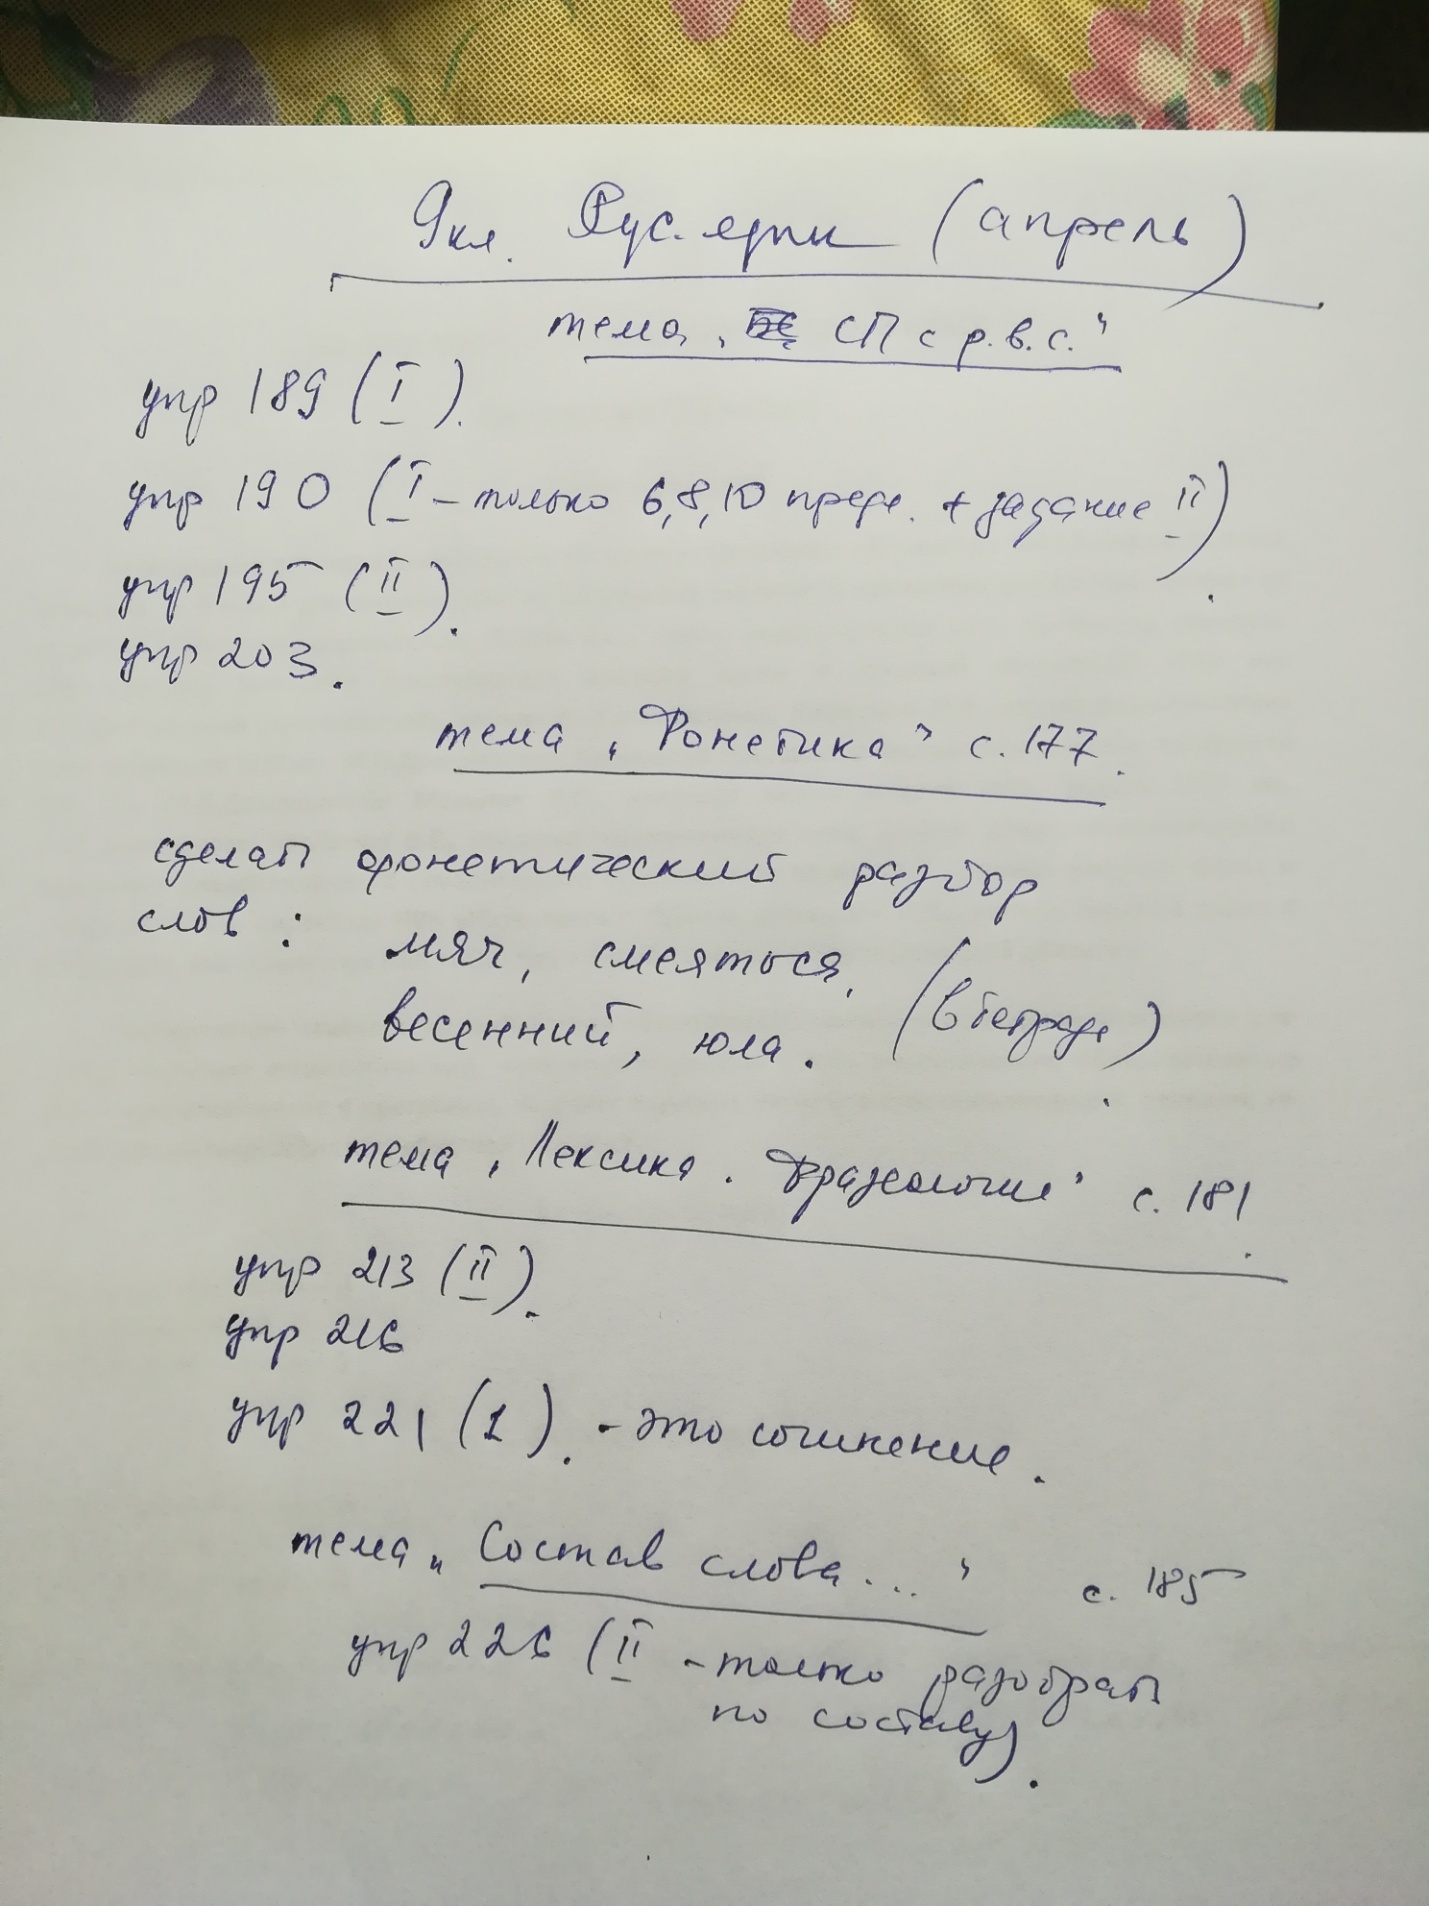 9кл. Рус. язык (апрель)
тема „ СП с р.в.с."
упр 189 (I).
упр 190 (I – только 6,8,10 предл. + задание II).
упр 195 (II).
упр 203.
тема „Фонетика" с. 177.
сделать фонетический разбор
слов: мяч, смеяться,
весенний, юла. (в тетради).
тема „Лексика. Фразеология" с. 181.
упр 213 (II).
упр 216
упр 221 (1). - это сочинение.
тема „Состав слова..." с. 185
упр 226 (II - только разобрать
по составу).